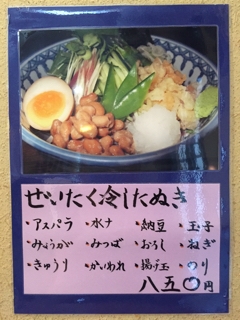 ぜいたく冷したぬき
・アスパラ ・水ナ ・納豆 ・玉子
・みょうが ・みつば ・おろし ・ねぎ
・きゅうり ・かいわれ ・揚げ玉 ・のり
八五〇円